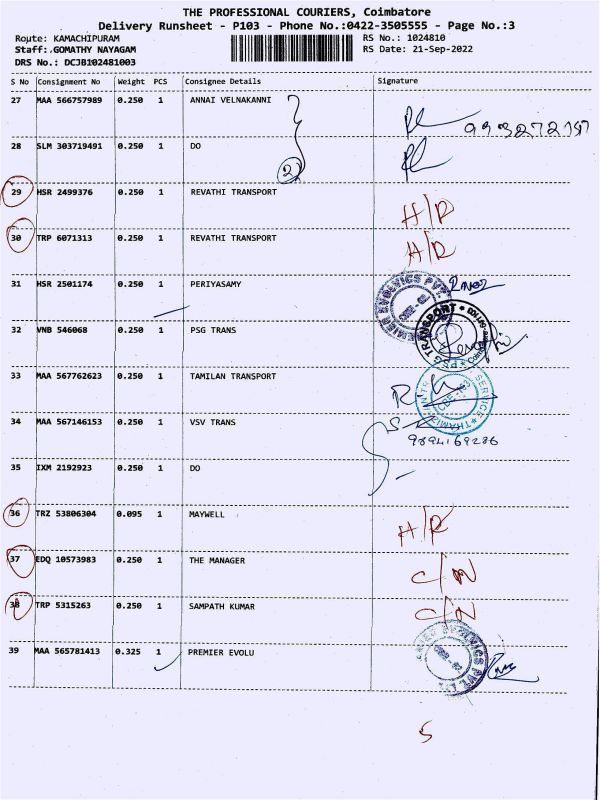 THE PROFESSIONAL COURIERS, Coimbatore
Delivery Runsheet - P103 - Phone No.:0422-3505555 - Page No.:3
Route: KAMACHIPURAM RS No.: 1024810
Staff: GOMATHY NAYAGAM RS Date: 21-Sep-2022
DRS No.: DCJB102481003
S No Consignment No Weight PCS Consignee Details Signature
27 MAA 566757989 0.250 1 ANNAI VELNAKANNI
28 SLM 303719491 0.250 1 DO
2
29 HSR 2499376 0.250 1 REVATHI TRANSPORT H/R
30 TRP 6071313 0.250 1 REVATHI TRANSPORT H/R
31 HSR 2501174 0.250 1 PERIYASAMY
32 VNB 546068 0.250 1 PSG TRANS
PSG TRANSPORT
33 MAA 567762623 0.250 1 TAMILAN TRANSPORT
SERVICE
34 MAA 567146153 0.250 1 VSV TRANS
9894169286
35 IXM 2192923 0.250 1 DO
36 TRZ 53806304 0.095 1 MAYWELL H/R
37 EDQ 10573983 0.250 1 THE MANAGER C/N
38 TRP 5315263 0.250 1 SAMPATH KUMAR C/N
39 MAA 565781413 0.325 1 PREMIER EVOLU
5